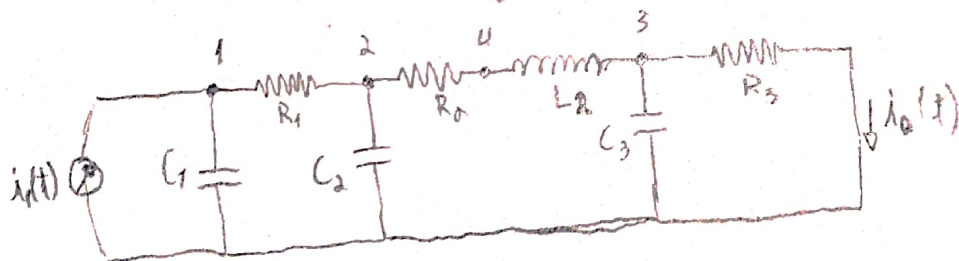 1 2 4 3
R₁ R₂ L₂ R₃
i₁(t) C₁ C₂ C₃ i₀(t)